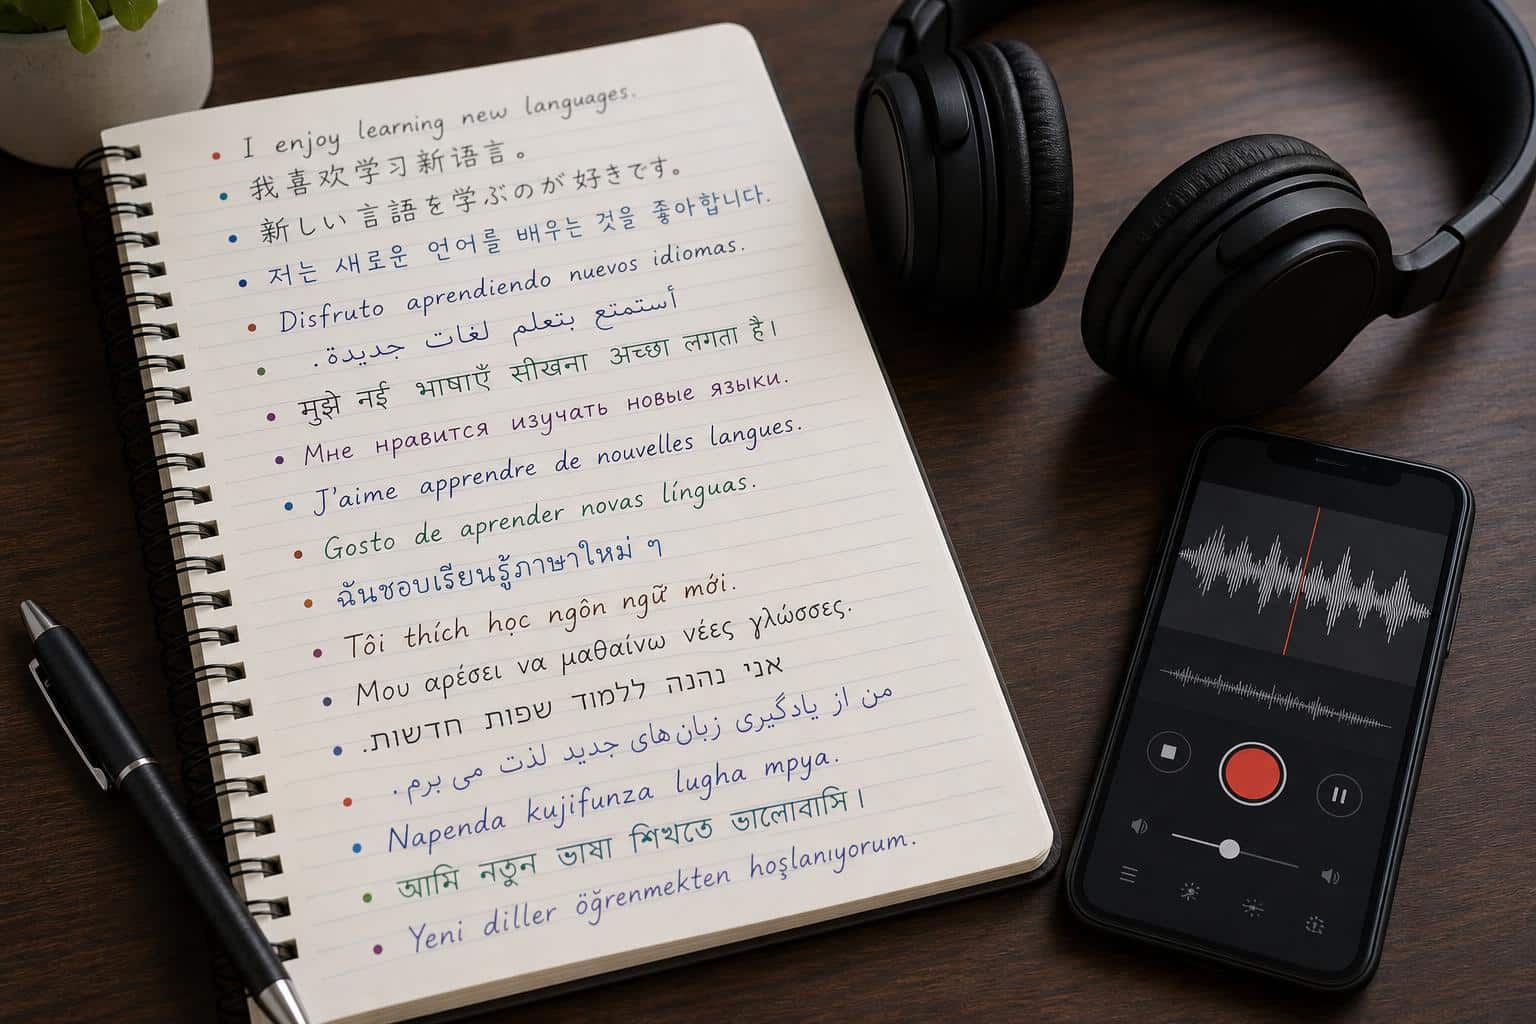 I enjoy learning new languages.
我喜欢学习新语言。
新しい言語を学ぶのが好きです。
저는 새로운 언어를 배우는 것을 좋아합니다.
Disfruto aprendiendo nuevos idiomas.
أستمتع بتعلم لغات جديدة.
मुझे नई भाषाएँ सीखना अच्छा लगता है।
Мне нравится изучать новые языки.
J'aime apprendre de nouvelles langues.
Gosto de aprender novas línguas.
ฉันชอบเรียนรู้ภาษาใหม่ ๆ
Tôi thích học ngôn ngữ mới.
Μου αρέσει να μαθαίνω νέες γλώσσες.
אני נהנה ללמוד שפות חדשות.
من از یادگیری زبان‌های جدید لذت می برم.
Napenda kujifunza lugha mpya.
আমি নতুন ভাষা শিখতে ভালোবাসি।
Yeni diller öğrenmekten hoşlanıyorum.